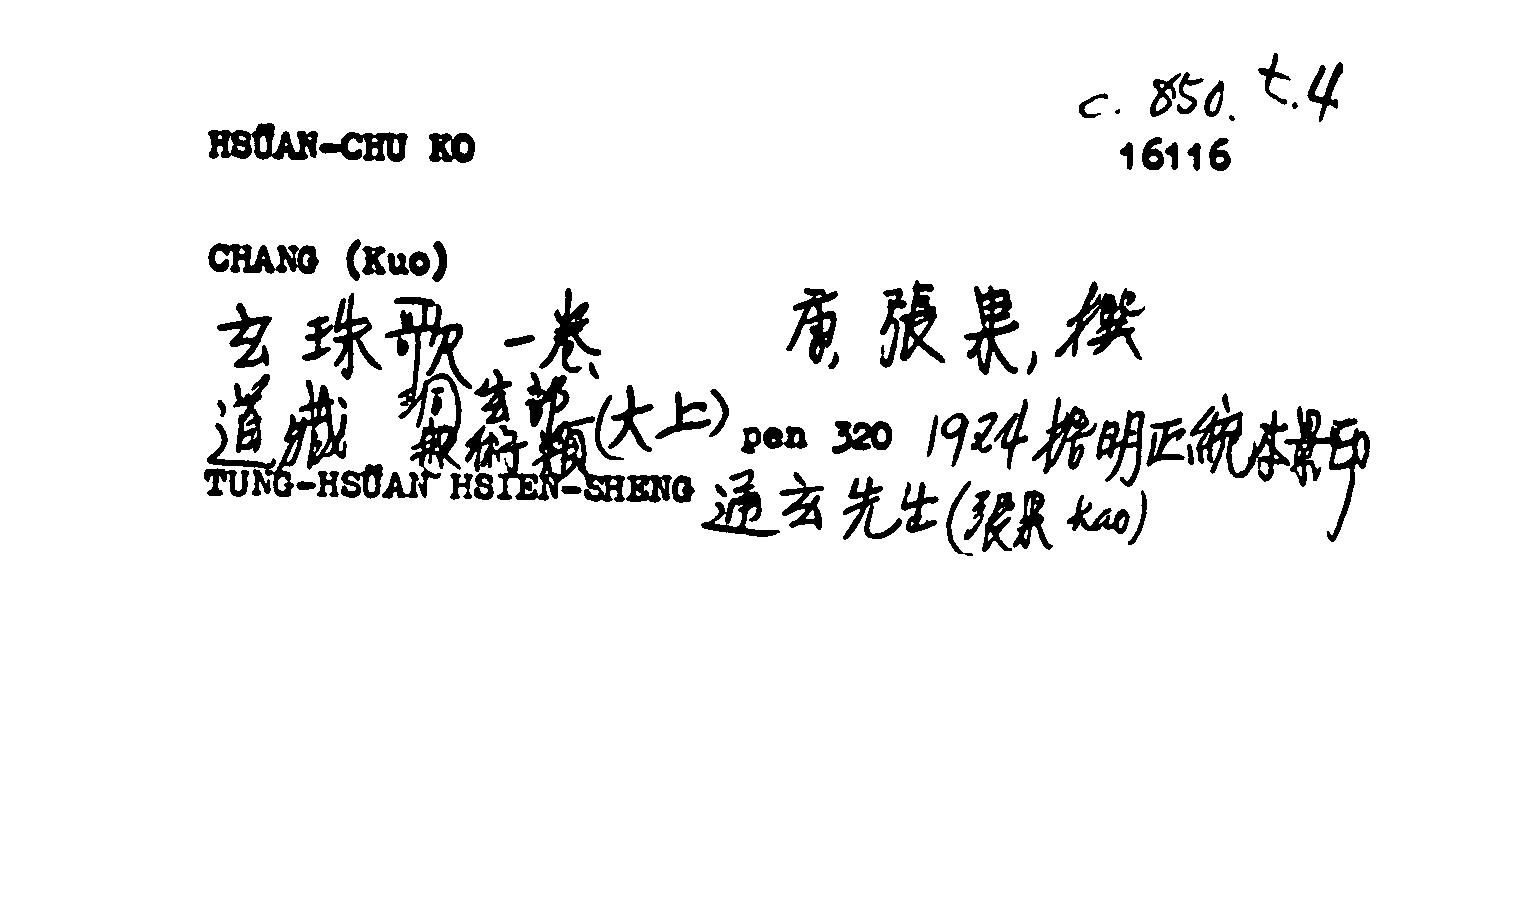 c. 850. t.4
HSÜAN-CHU KO 16116
CHANG (Kuo)
玄珠歌一卷 唐, 張果, 撰
道藏 洞玄部 衆術類 (大上) pen 320 1924 據明正統本景印
TUNG-HSÜAN HSIEN-SHENG 通玄先生 (張果 Kao)